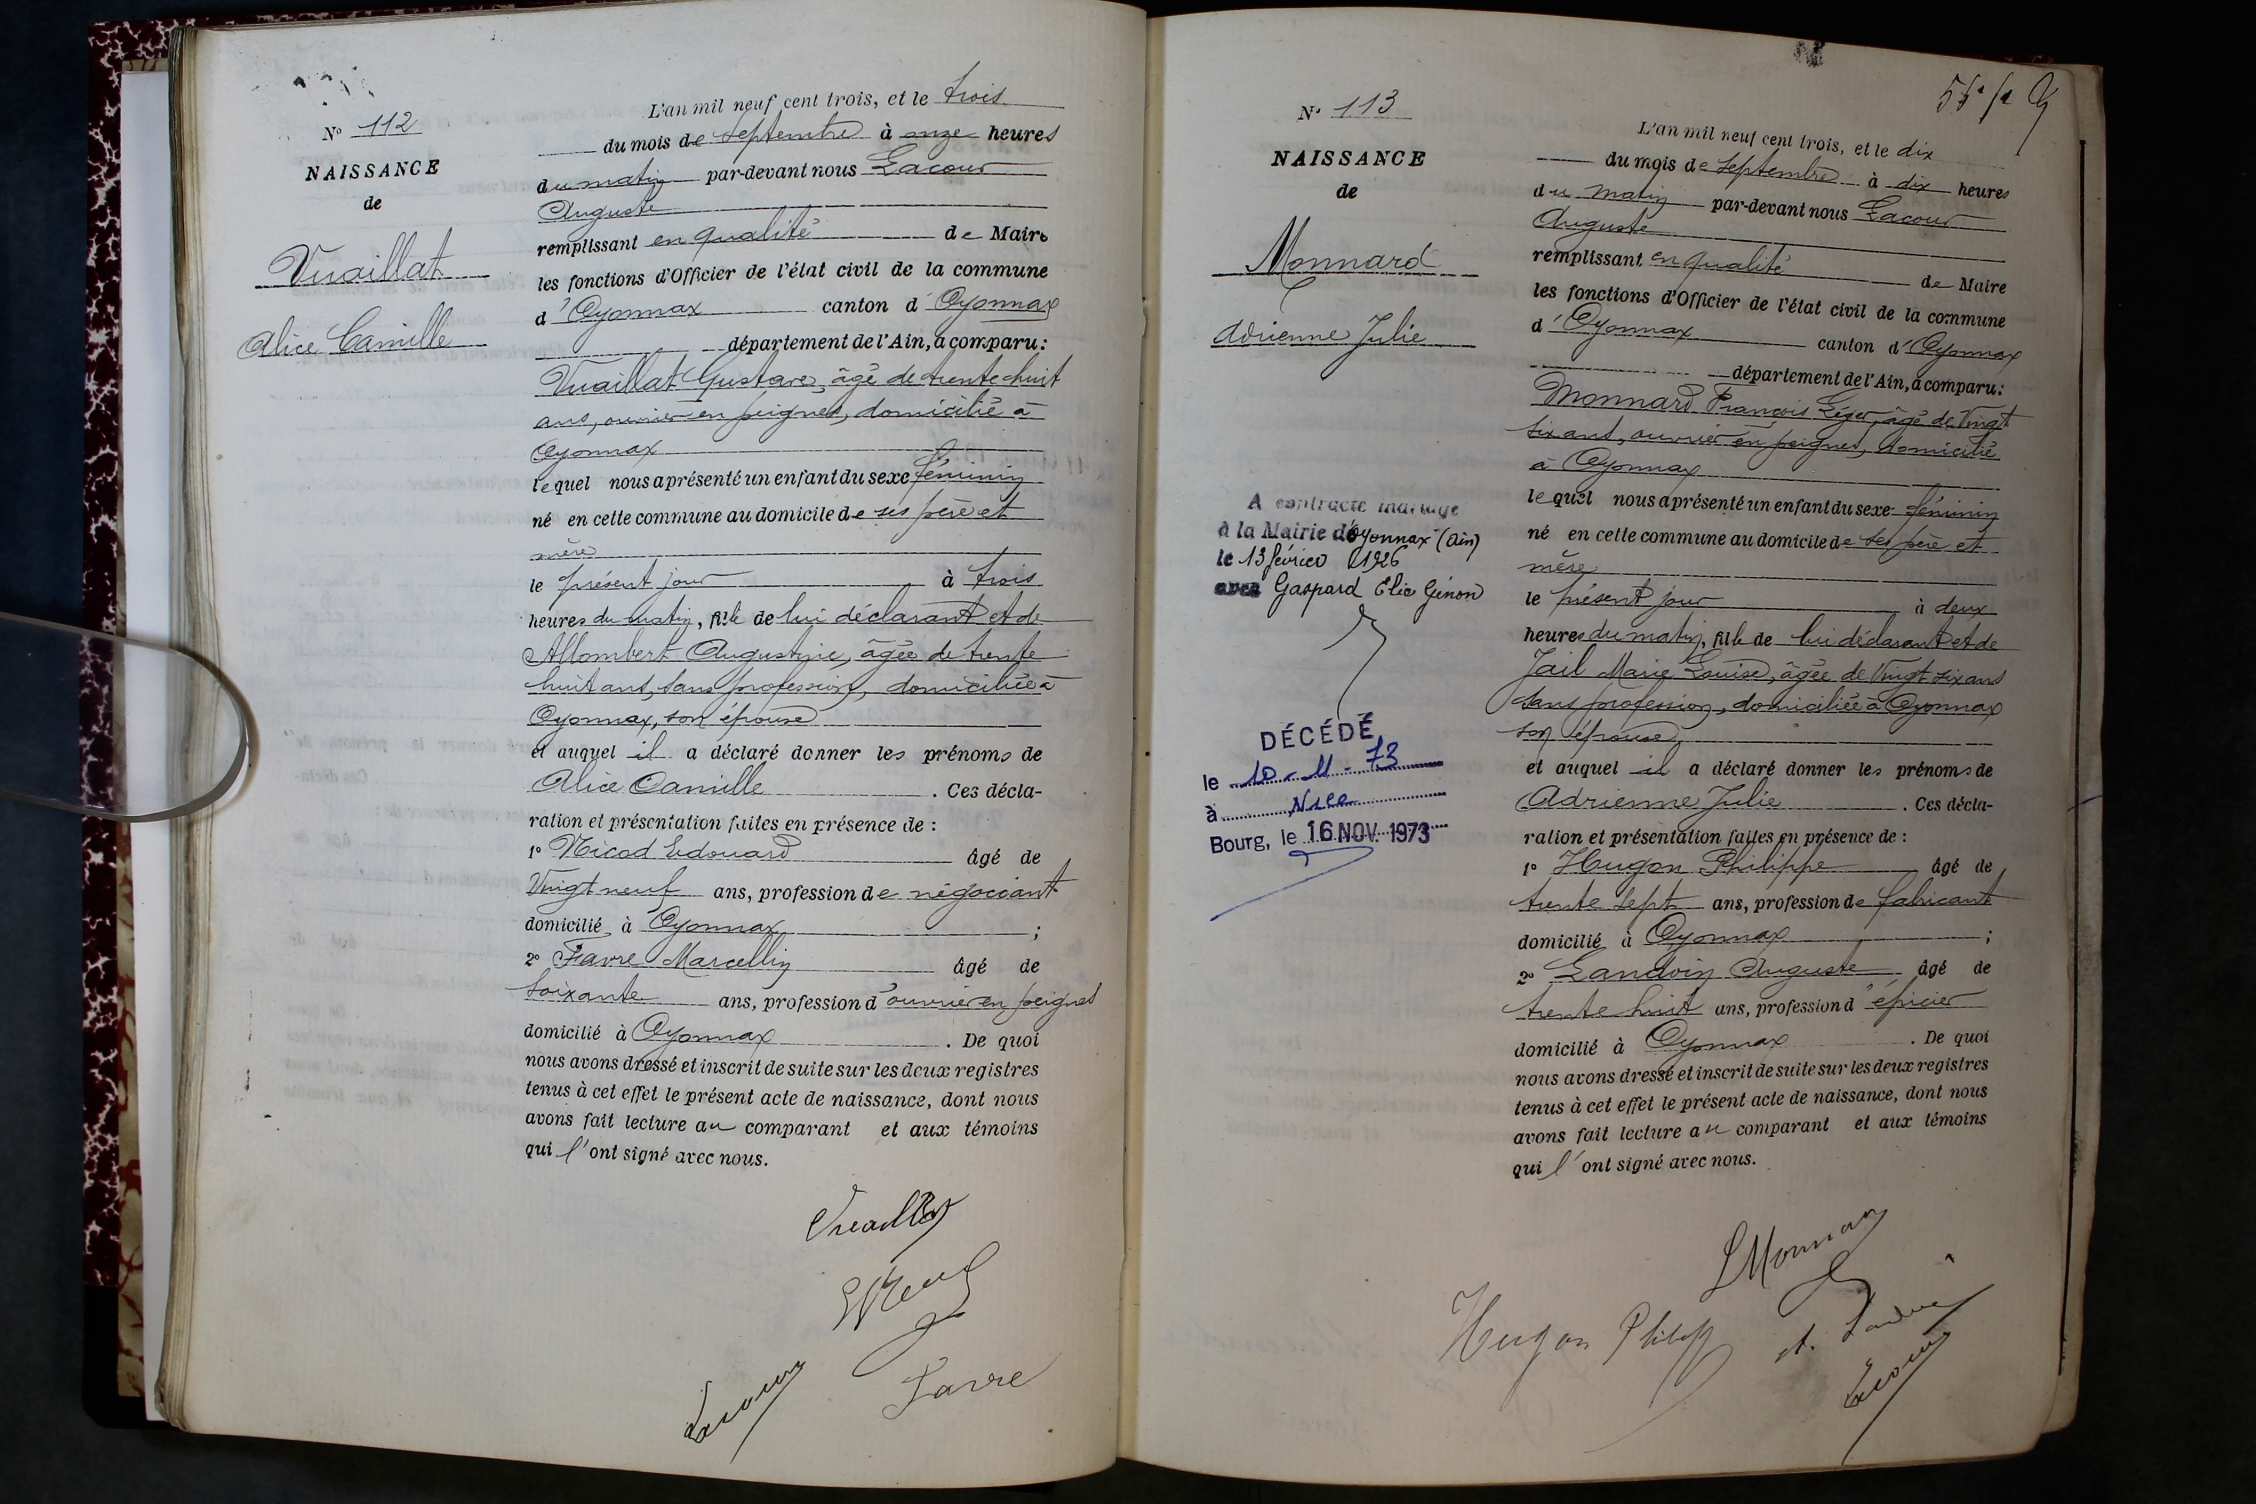 N° 112
NAISSANCE
de
Vuaillat
Alice Camille
L'an mil neuf cent trois, et le trois
du mois de septembre à onze heures
du matin par-devant nous Lacour
Auguste
remplissant en qualité de Maire
les fonctions d'Officier de l'état civil de la commune
d'Oyonnax canton d'Oyonnax
département de l'Ain, a comparu :
Vuaillat Gustave, âgé de trente huit
ans, ouvrier en peignes, domicilié à
Oyonnax
lequel nous a présenté un enfant du sexe féminin
né en cette commune au domicile de ses père et
mère
le présent jour à trois
heures du matin, fille de lui déclarant et de
Allombert Augustine, âgée de trente
huit ans, sans profession, domiciliée à
Oyonnax, son épouse
et auquel il a déclaré donner les prénoms de
Alice Camille . Ces décla-
ration et présentation faites en présence de :
1° Nicod Edouard âgé de
Vingt neuf ans, profession de négociant
domicilié à Oyonnax ;
2° Favre Marcellin âgé de
soixante ans, profession d'ouvrier en peignes
domicilié à Oyonnax . De quoi
nous avons dressé et inscrit de suite sur les deux registres
tenus à cet effet le présent acte de naissance, dont nous
avons fait lecture au comparant et aux témoins
qui l'ont signé avec nous.
Vuaillat
Favre
Lacour
N° 113
NAISSANCE
de
Monnard
Adrienne Julie
A contracté mariage
à la Mairie d'Oyonnax (Ain)
le 13 février 1926
avec Gaspard Elie Génon
DÉCÉDÉ
le 10 - 11 - 73
à Nice
Bourg, le 16 NOV. 1973
L'an mil neuf cent trois, et le dix
du mois de septembre à dix heures
du matin par-devant nous Lacour
Auguste
remplissant en qualité de Maire
les fonctions d'Officier de l'état civil de la commune
d'Oyonnax canton d'Oyonnax
département de l'Ain, a comparu :
Monnard François Léger, âgé de Vingt
six ans, ouvrier en peignes, domicilié
à Oyonnax
lequel nous a présenté un enfant du sexe féminin
né en cette commune au domicile de ses père et
mère
le présent jour à deux
heures du matin, fille de lui déclarant et de
Jail Marie Louise, âgée de Vingt six ans
sans profession, domiciliée à Oyonnax
son épouse
et auquel il a déclaré donner les prénoms de
Adrienne Julie . Ces décla-
ration et présentation faites en présence de :
1° Hugon Philippe âgé de
trente sept ans, profession de fabricant
domicilié à Oyonnax ;
2° Landoin Auguste âgé de
trente huit ans, profession d'épicier
domicilié à Oyonnax . De quoi
nous avons dressé et inscrit de suite sur les deux registres
tenus à cet effet le présent acte de naissance, dont nous
avons fait lecture au comparant et aux témoins
qui l'ont signé avec nous.
Hugon Philippe
Lacour